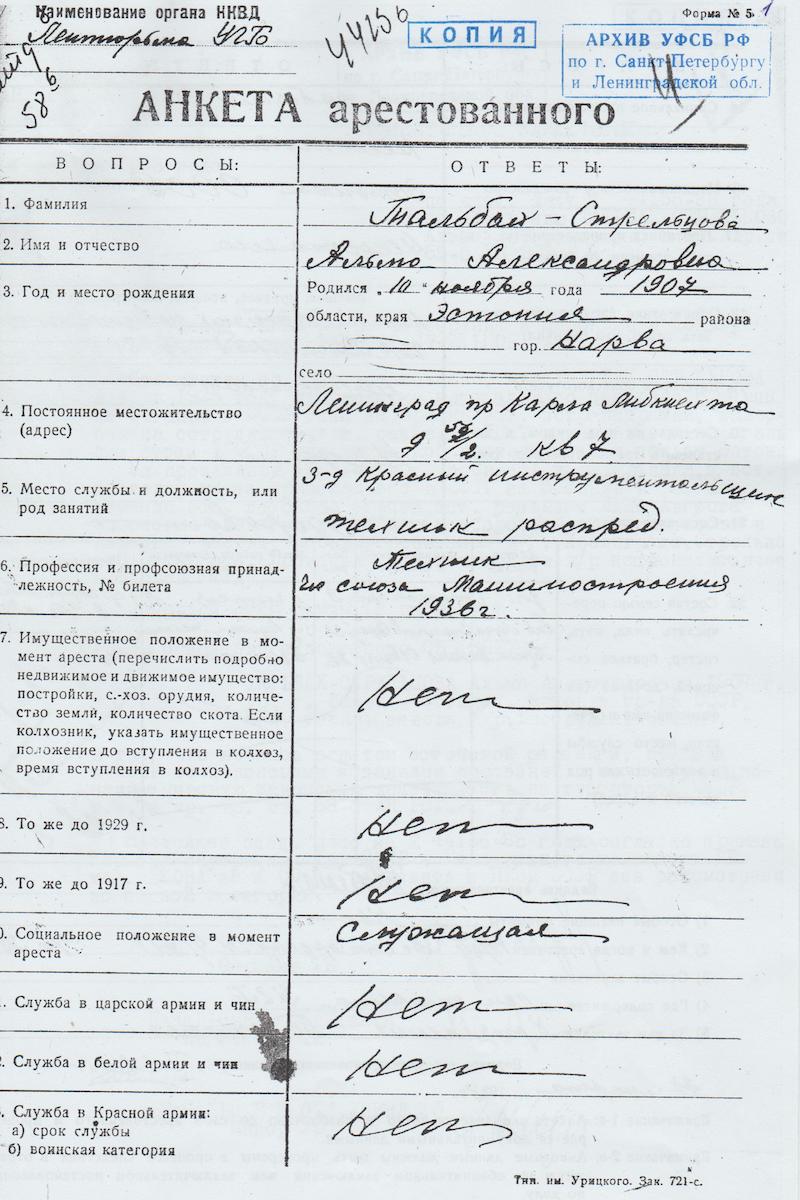 Наименование органа НКВД
Лентюрьма УГБ
44256
КОПИЯ
Форма № 5
1
АРХИВ УФСБ РФ
по г. Санкт-Петербургу
и Ленинградской обл.
586
АНКЕТА арестованного
ВОПРОСЫ:
ОТВЕТЫ:
1. Фамилия
Тальбак-Стрельцова
2. Имя и отчество
Альма Александровна
3. Год и место рождения
Родился „10" ноября года 1907
области, края Эстония района
гор. Нарва
село
4. Постоянное местожительство
(адрес)
Ленинград пр Карла Либкнехта
д /2. кв 7
5. Место службы и должность, или
род занятий
З-д Красный инструментальщик
техник распред.
6. Профессия и профсоюзная принад-
лежность, № билета
Техник
союза Машиностроения
1936 г.
7. Имущественное положение в мо-
мент ареста (перечислить подробно
недвижимое и движимое имущество:
постройки, с.-хоз. орудия, количе-
ство земли, количество скота. Если
колхозник, указать имущественное
положение до вступления в колхоз,
время вступления в колхоз).
Нет
8. То же до 1929 г.
Нет
9. То же до 1917 г.
Нет
0. Социальное положение в момент
ареста
Служащая
. Служба в царской армии и чин
Нет
2. Служба в белой армии и чин
Нет
. Служба в Красной армии:
а) срок службы
б) воинская категория
Нет
Тип. им. Урицкого. Зак. 721-с.